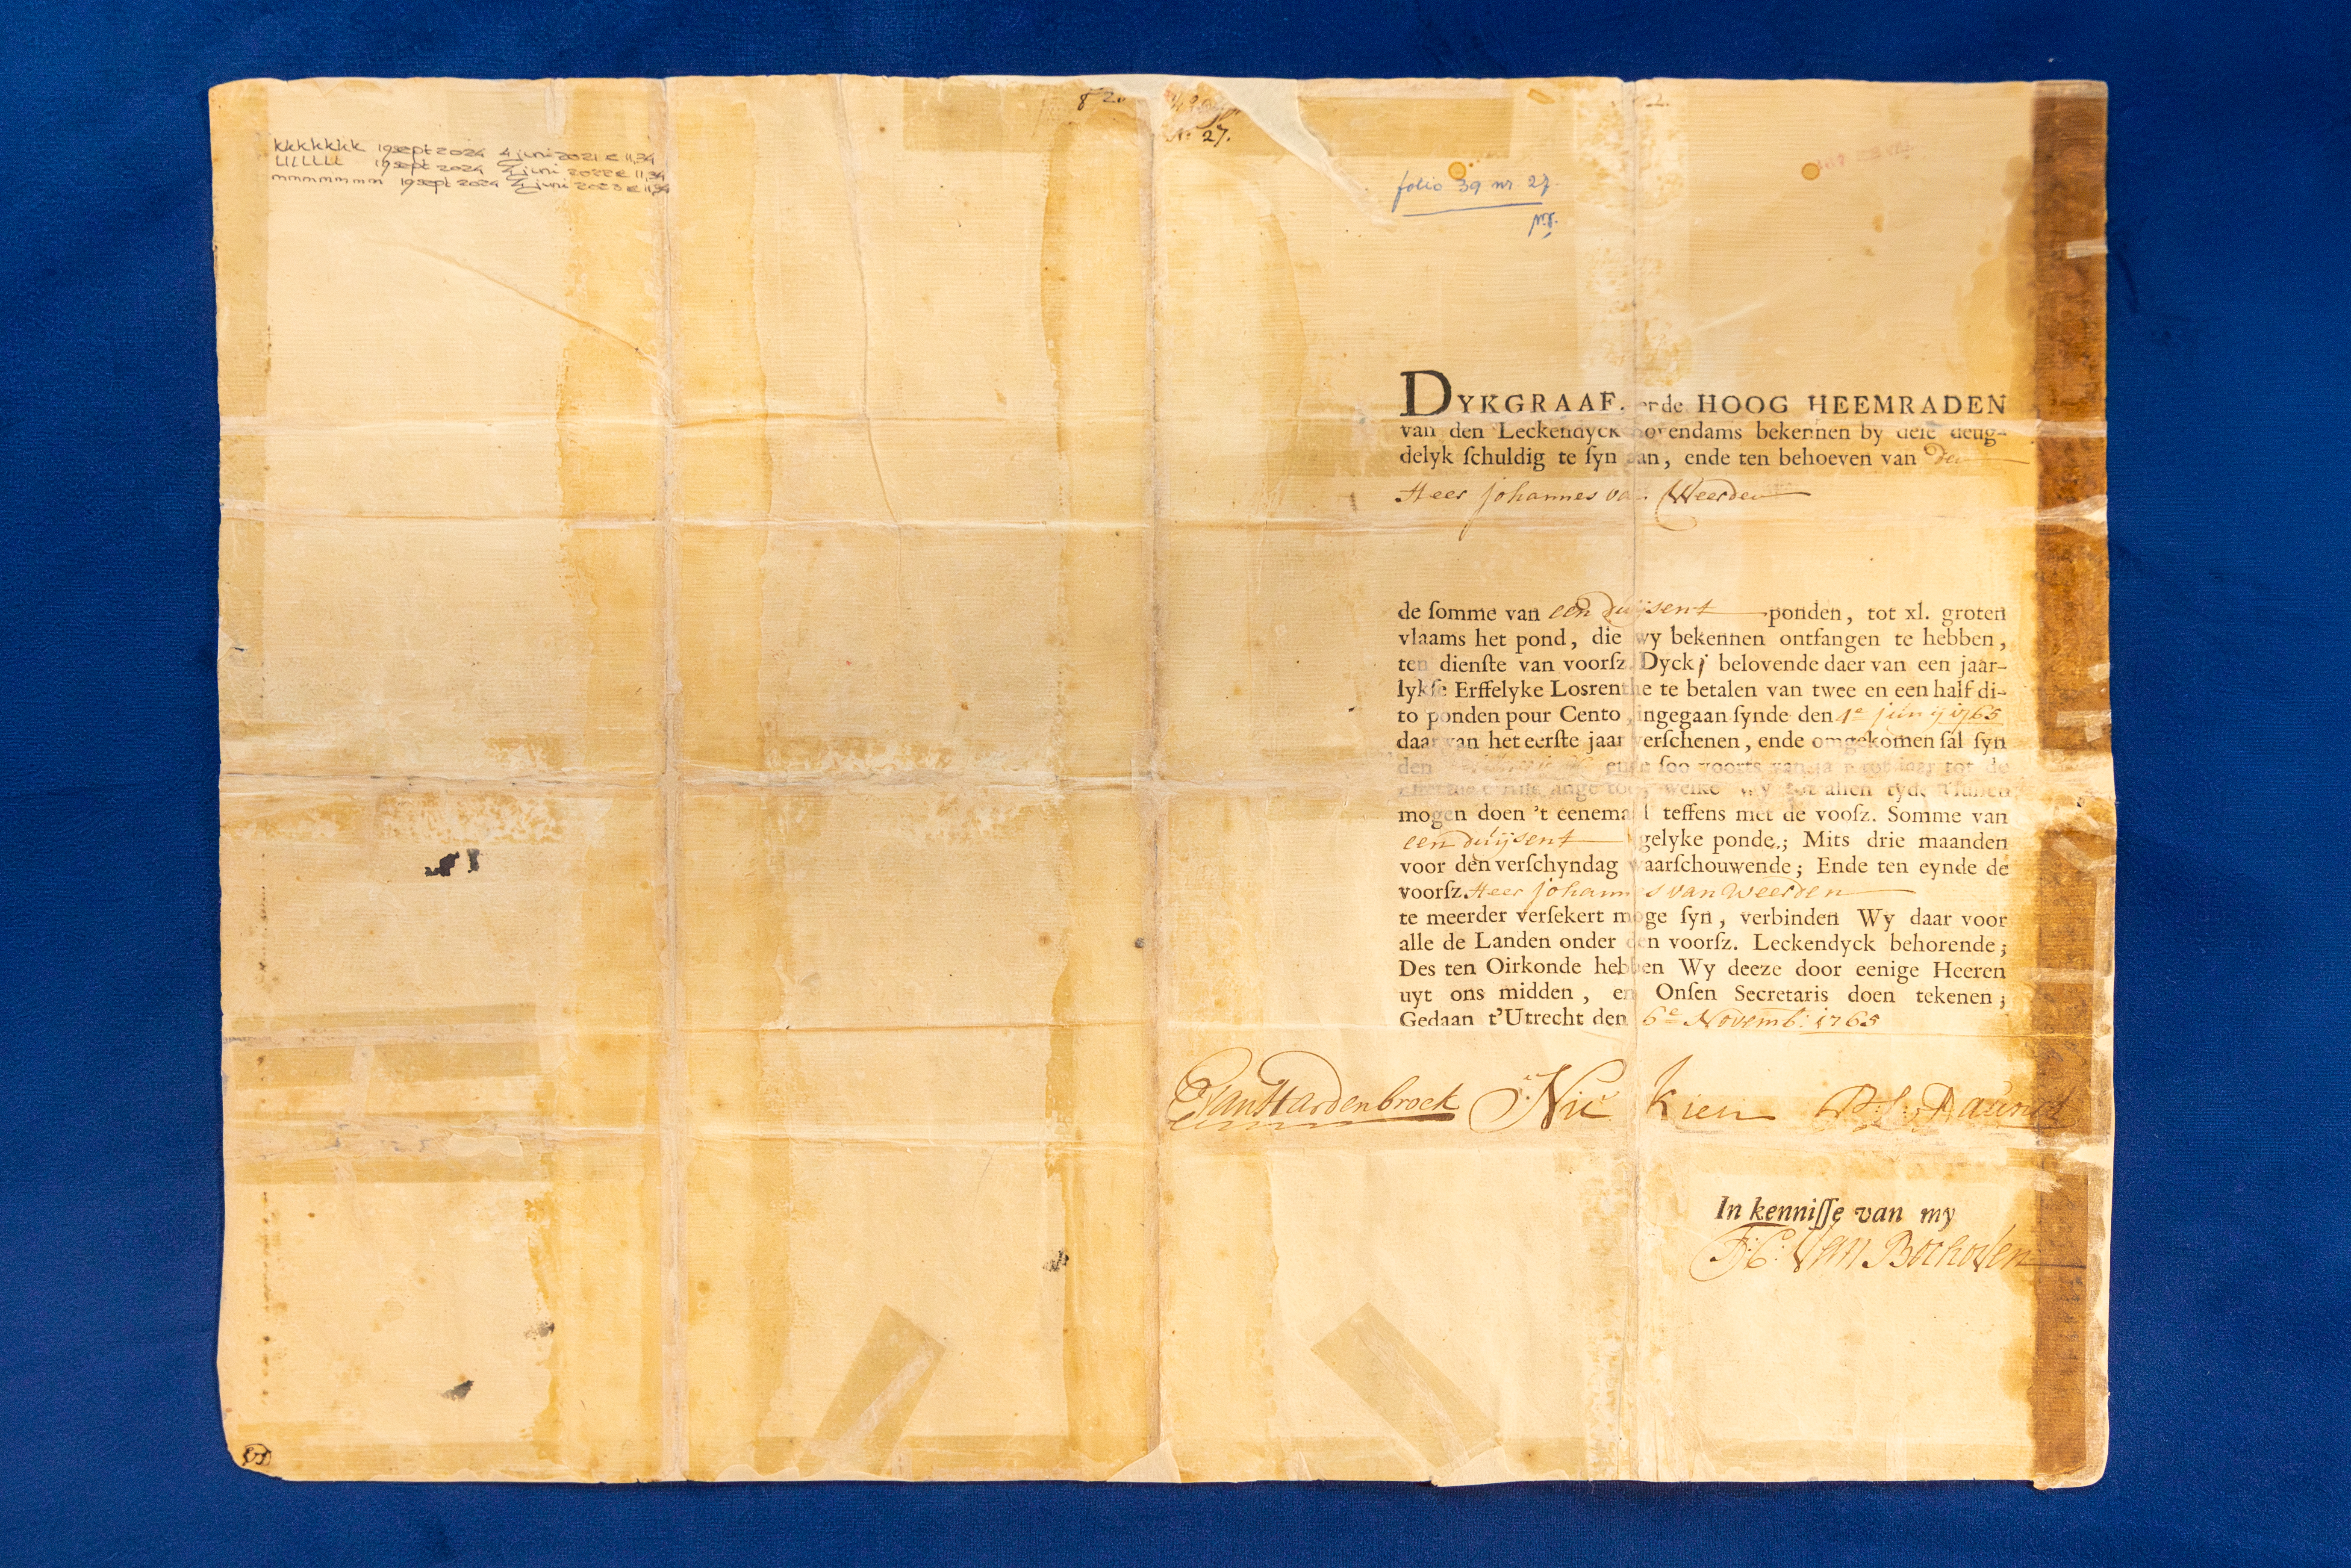 kkkkkkk 19 sept 2024 4 juni 2021 € 11,34
LLLLLLL 19 sept 2024 4 juni 2022 € 11,34
mmmmmmm 19 sept 2024 4 juni 2023 € 11,34
No 27.
folio 39 nr. 27.
DYKGRAAF. ende HOOG HEEMRADEN
van den Leckendyck Bovendams bekennen by deſe deug-
delyk ſchuldig te ſyn aan, ende ten behoeven van den
Heer Johannes van Weerden
de ſomme van een duijsent ponden, tot xl. groten
vlaams het pond, die wy bekennen ontfangen te hebben,
ten dienſte van voorſz. Dyck, belovende daer van een jaar-
lykſe Erffelyke Losrenthe te betalen van twee en een half di-
to ponden pour Cento, ingegaan ſynde den 4e junij 1765
daar van het eerſte jaar verſchenen, ende omgekomen ſal ſyn
den ende ſoo voorts van jaar tot jaar tot de
toe, welke wy tot allen tyde ſullen
mogen doen 't eenemaal teffens met de vooſz. Somme van
een duijsent gelyke ponde,; Mits drie maanden
voor den verſchyndag waarſchouwende; Ende ten eynde de
voorſz. Heer Johannes van Weerden
te meerder verſekert moge ſyn, verbinden Wy daar voor
alle de Landen onder den voorſz. Leckendyck behorende;
Des ten Oirkonde hebben Wy deeze door eenige Heeren
uyt ons midden, en Onſen Secretaris doen tekenen;
Gedaan t'Utrecht den 6e Novemb: 1765
van Hardenbroek Nic Kien
In kenniſſe van my
van Bochoven